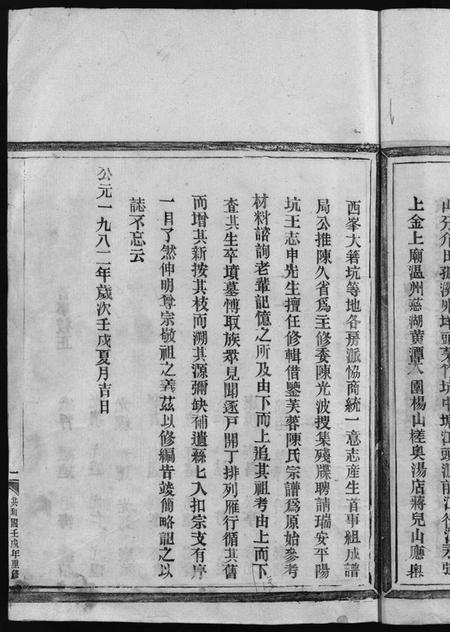 上金上廟溫州慈湖黄潭大圍楊山槎奥湯店蔣兒山廳嶴
西峯大箬坑等地各房派協商統一意志產生首事組成譜
局公推陳久省爲主修委陳光波搜集殘牒聘請瑞安平陽
坑王志申先生擅任修輯借鑒芙蓉陳氏宗譜爲原始參考
材料諮詢老輩記憶之所及由下而上追其祖考由上而下
查其生卒墳墓慱取族衆見聞逐戸開丁排列雁行循其舊
而增其新按其枝而溯其源彌缺補遺綠七入扣宗支有序
一目了然伸明尊宗敬祖之義茲以修編旹竣簡略記之以
誌不忘云
公元一九八二年歲次壬戌夏月吉日
一
共和國壬戌年重修